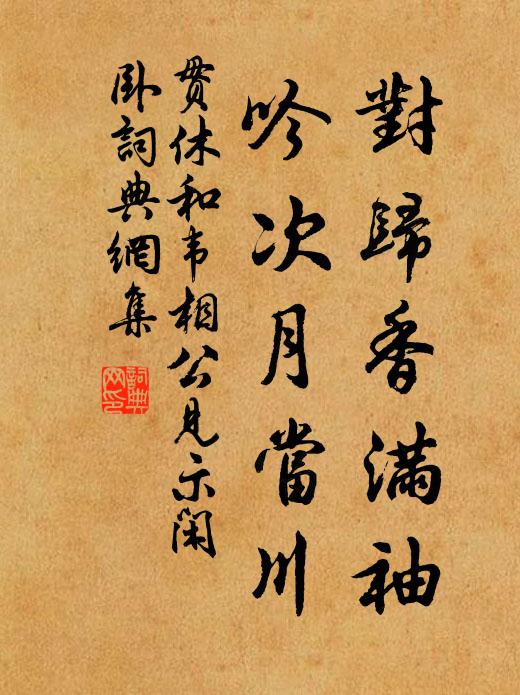 對歸香滿袖
吟次月當川
貫休和韦相公見示閑
卧詞典網集
詞典
网印